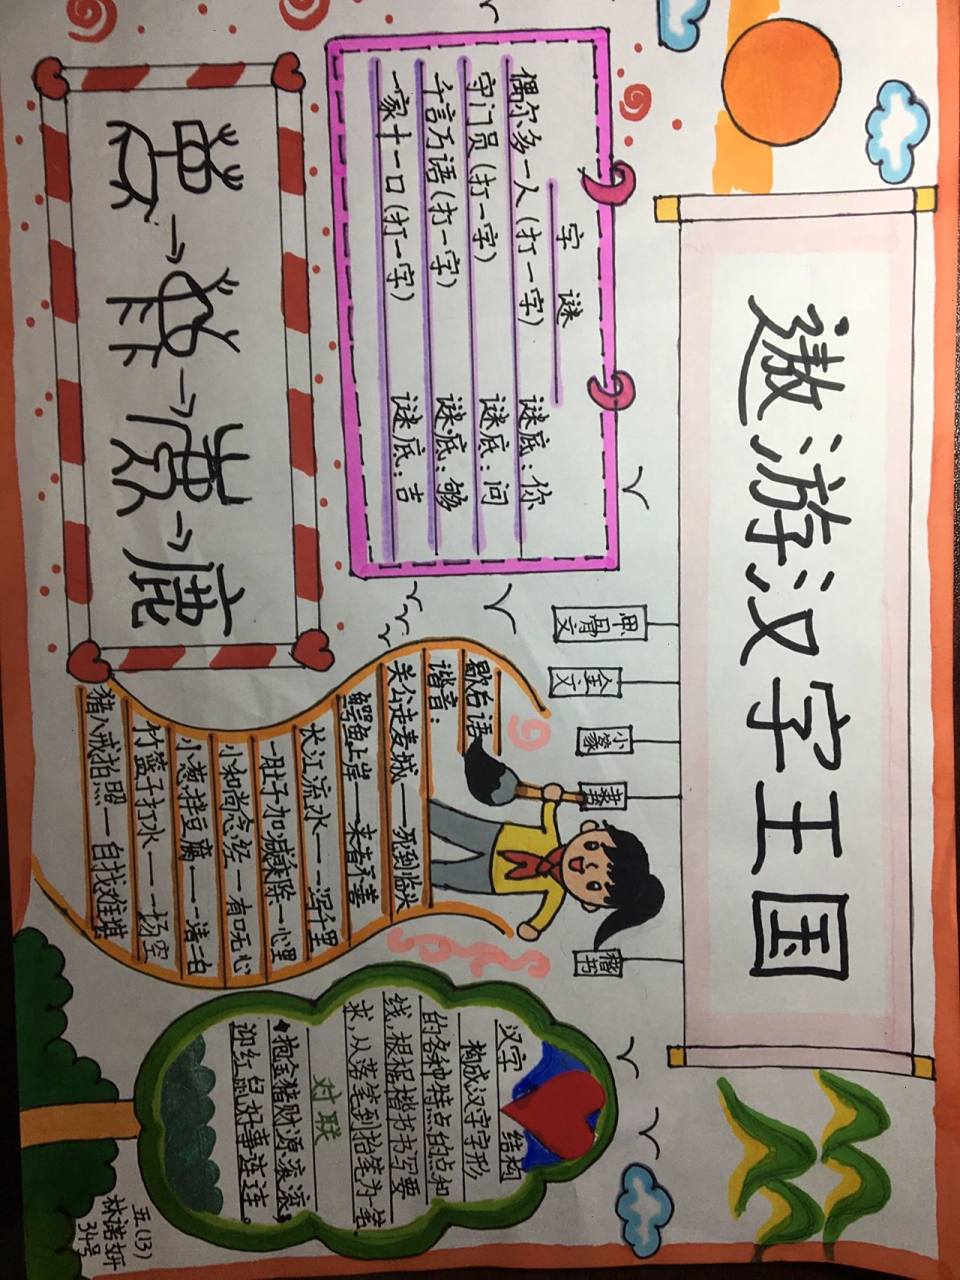 遨游汉字王国
字谜
偶尔多一人(打一字) 谜底:你
守门员(打一字) 谜底:问
千言万语(打一字) 谜底:够
一家十一口(打一字) 谜底:吉
甲骨文
金文
小篆
隶书
楷书
鹿
歇后语
谐音:
关公走麦城——死到临头
鳄鱼上岸——来者不善
长江流水——一泻千里
一肚子加减乘除—心里
小和尚念经—有口无心
小葱拌豆腐——清二白
竹篮子打水——一场空
猪八戒拍照—自找难堪
汉字结构
构成汉字字形
的各种特点的点和
线,根据楷书书写要
求,从落笔到抬笔为一笔
对联
抱金猪财源滚滚,
迎红鼠好事连连。
五(13)
林诺妍
34号